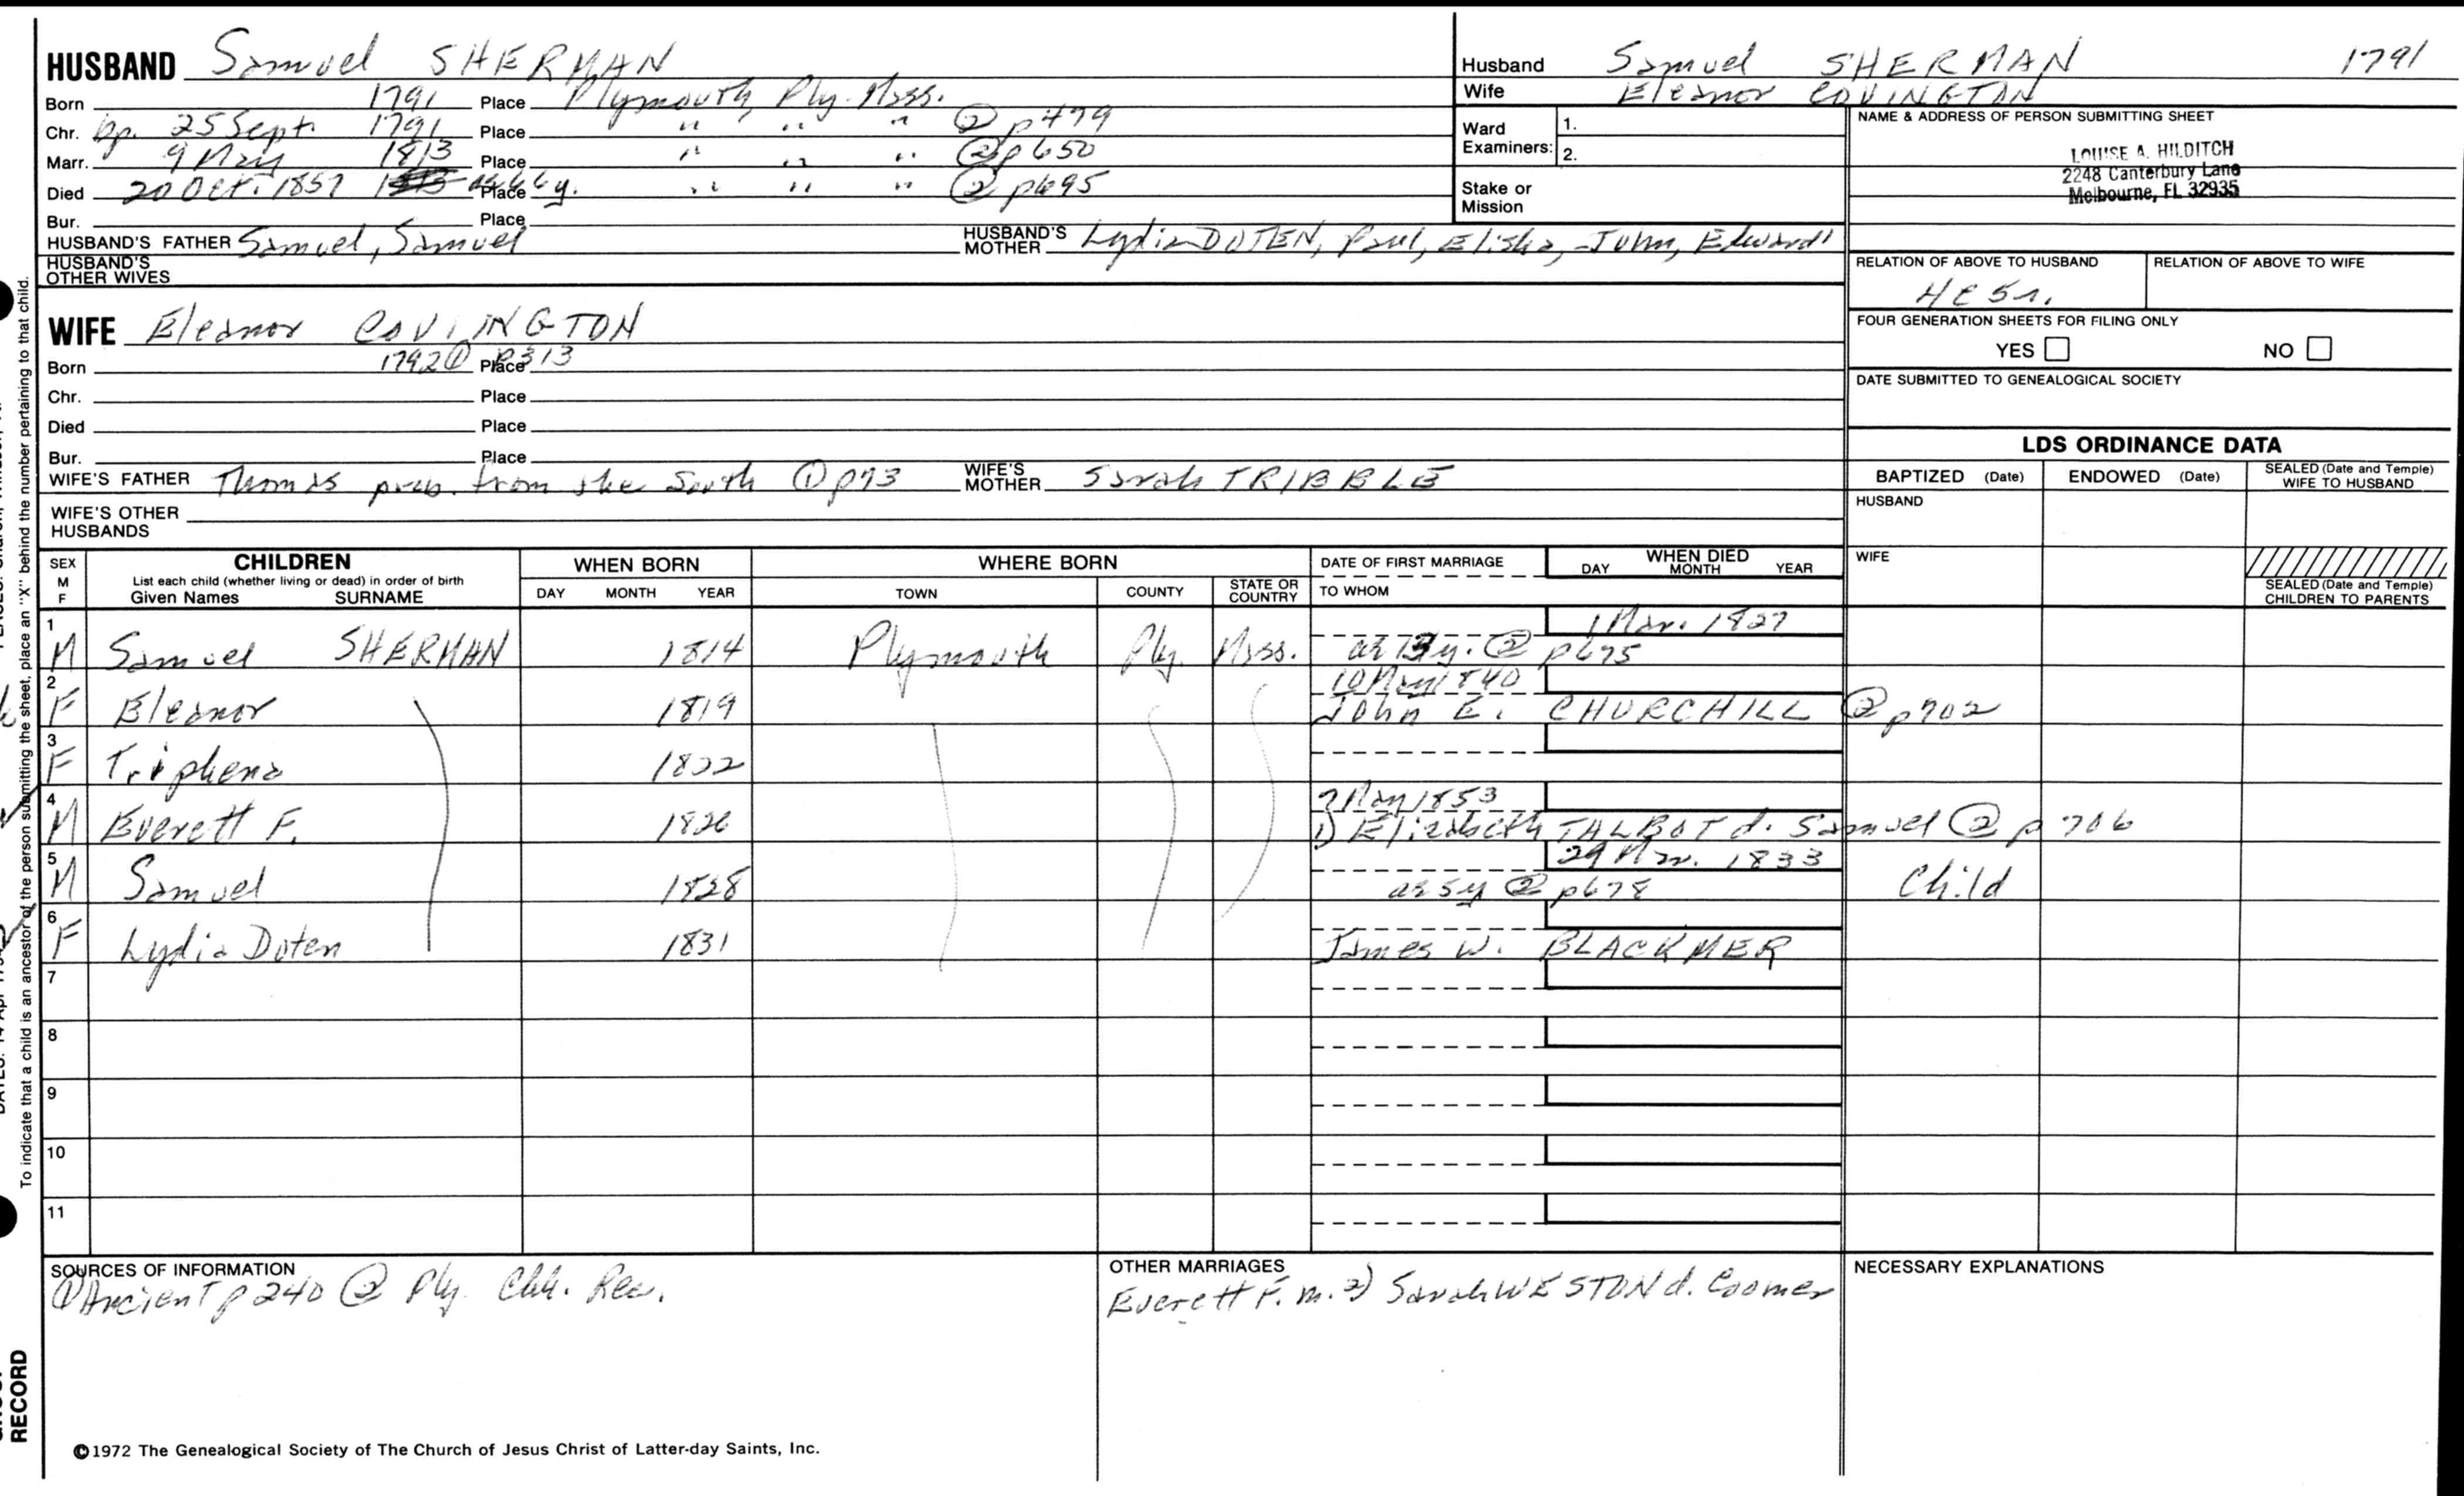 HUSBAND Samuel SHERMAN
Born 1791 Place Plymouth, Ply. Mass.
Chr. bp. 25 Sept. 1791 Place " " " ② p479
Marr. 9 May 1813 Place " " " ② p650
Died 20 Oct. 1857 ae 66y. Place " " " ② p695
Bur. Place
HUSBAND'S FATHER Samuel, Samuel HUSBAND'S MOTHER Lydia DOTEN, Paul, Elisha, John, Edward1
HUSBAND'S OTHER WIVES
Husband Samuel SHERMAN 1791
Wife Eleanor COVINGTON
Ward Examiners: 1.
2.
Stake or Mission
NAME & ADDRESS OF PERSON SUBMITTING SHEET
LOUISE A. HILDITCH
2248 Canterbury Lane
Melbourne, FL 32935
RELATION OF ABOVE TO HUSBAND RELATION OF ABOVE TO WIFE
FOUR GENERATION SHEETS FOR FILING ONLY
YES NO
DATE SUBMITTED TO GENEALOGICAL SOCIETY
WIFE Eleanor COVINGTON
Born 1792 ① p313 Place
Chr. Place
Died Place
Bur. Place
WIFE'S FATHER Thomas prob. from the South ① p73 WIFE'S MOTHER Sarah TRIBBLE
WIFE'S OTHER HUSBANDS
LDS ORDINANCE DATA
BAPTIZED (Date) ENDOWED (Date) SEALED (Date and Temple) WIFE TO HUSBAND
HUSBAND
WIFE
SEALED (Date and Temple) CHILDREN TO PARENTS
SEX M F CHILDREN List each child (whether living or dead) in order of birth Given Names SURNAME
WHEN BORN DAY MONTH YEAR
WHERE BORN TOWN COUNTY STATE OR COUNTRY
DATE OF FIRST MARRIAGE TO WHOM
WHEN DIED DAY MONTH YEAR
1 M Samuel SHERMAN 1814 Plymouth Ply. Mass. 1 Mar. 1827 ae 13y. ② p675
2 F Eleanor 1819 10 May 1840 John E. CHURCHILL ② p702
3 F Triphena 1822
4 M Everett F. 1826 7 May 1853 1) Elizabeth TALBOT d. Samuel ② p 706
5 M Samuel 1828 29 Mar. 1833 ae 5y ② p678 Child
6 F Lydia Doten 1831 James W. BLACKMER
7
8
9
10
11
SOURCES OF INFORMATION
① Ancient p 240 ② Ply. Chh. Rec.
OTHER MARRIAGES
Everett F. m. 2) Sarah WESTON d. Coomer
NECESSARY EXPLANATIONS
©1972 The Genealogical Society of The Church of Jesus Christ of Latter-day Saints, Inc.
To indicate that a child is an ancestor of the person submitting the sheet, place an "X" behind the number pertaining to that child.
RECORD